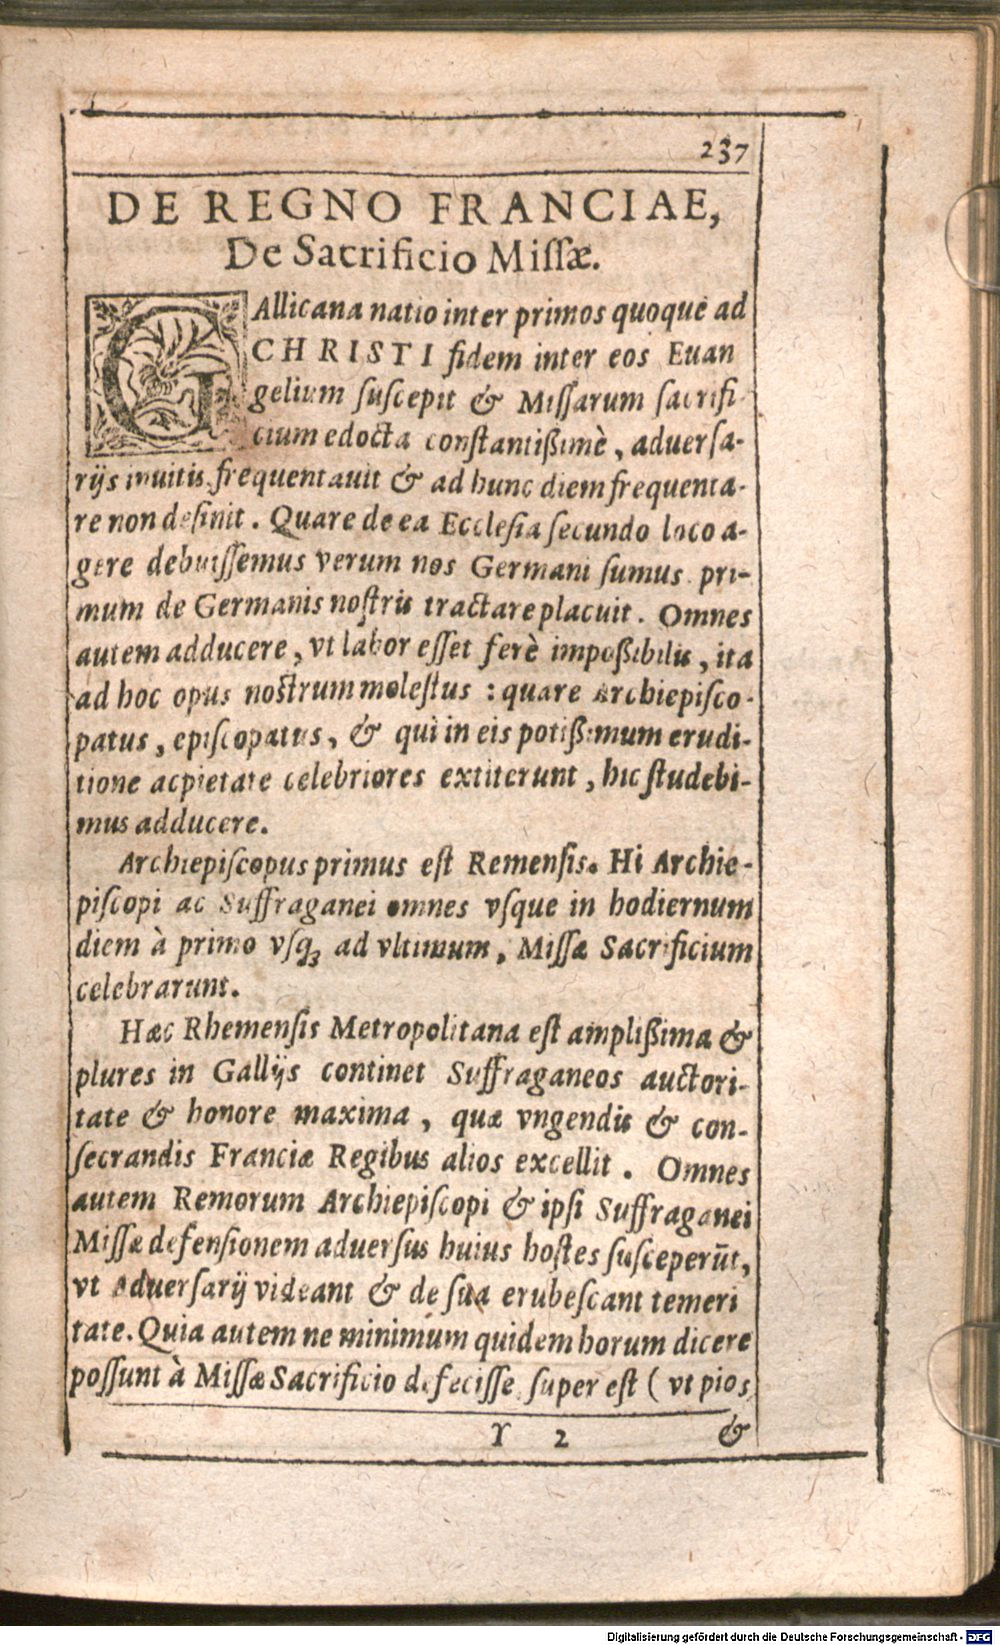 237
DE REGNO FRANCIAE,
De Sacrificio Missæ.
GAllicana natio inter primos quoque ad
CHRISTI fidem inter eos Euan
gelium suscepit & Missarum sacrifi-
cium edocta constantißimè, aduersa-
rijs inuitis frequentauit & ad hunc diem frequenta-
re non desinit. Quare de ea Ecclesia secundo loco a-
gere debuissemus verum nos Germani sumus pri-
mum de Germanis nostris tractare placuit. Omnes
autem adducere, vt labor esset ferè impoßibilis, ita
ad hoc opus nostrum molestus : quare Archiepisco-
patus, episcopatus, & qui in eis potißimum erudi-
tione ac pietate celebriores extiterunt, hic studebi-
mus adducere.
Archiepiscopus primus est Remensis. Hi Archie-
piscopi ac Suffraganei omnes vsque in hodiernum
diem à primo vsq; ad vltimum, Missæ Sacrificium
celebrarunt.
Hæc Rhemensis Metropolitana est amplißima &
plures in Gallijs continet Suffraganeos auctori-
tate & honore maxima, quæ vngendis & con-
secrandis Franciæ Regibus alios excellit. Omnes
autem Remorum Archiepiscopi & ipsi Suffraganei
Missæ defensionem aduersus huius hostes susceperūt,
vt aduersarij videant & de sua erubescant temeri
tate. Quia autem ne minimum quidem horum dicere
possunt à Missæ Sacrificio defecisse super est ( vt pios
Y 2 &
Digitalisierung gefördert durch die Deutsche Forschungsgemeinschaft - DFG